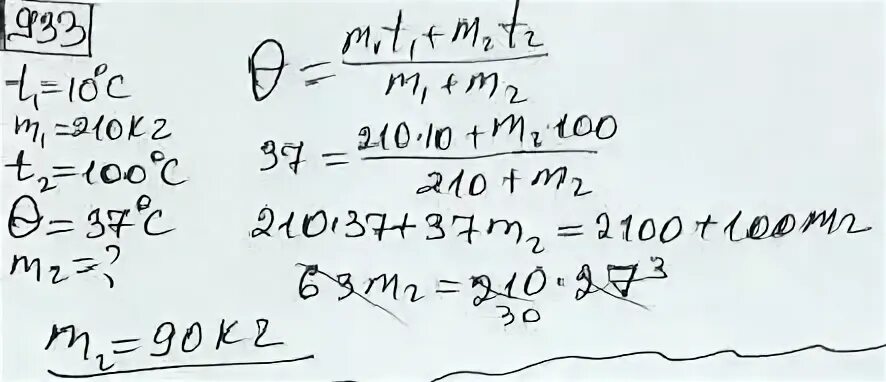 933
t₁=10°C
m₁=210кг
t₂=100°C
θ=37°C
m₂=?
θ = (m₁t₁+m₂t₂)/(m₁+m₂)
37 = (210·10+m₂·100)/(210+m₂)
210·37+37m₂=2100+100m₂
63m₂=210·27 3
30
m₂=90кг